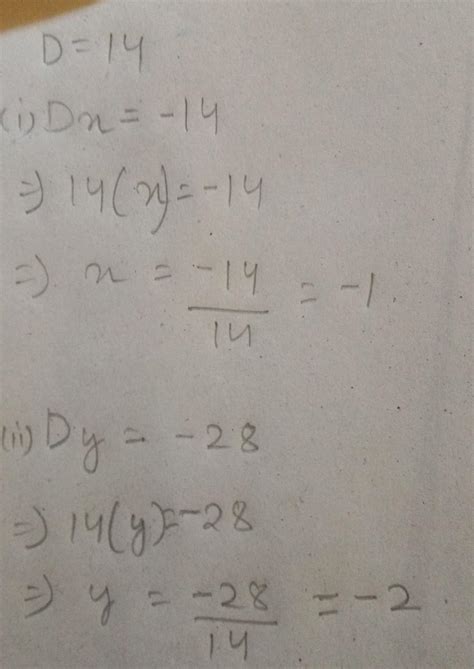 D = 14
(i) Dx = -14
=) 14(x) = -14
=) x = -14/14 = -1
(ii) Dy = -28
=) 14(y) = -28
=) y = -28/14 = -2